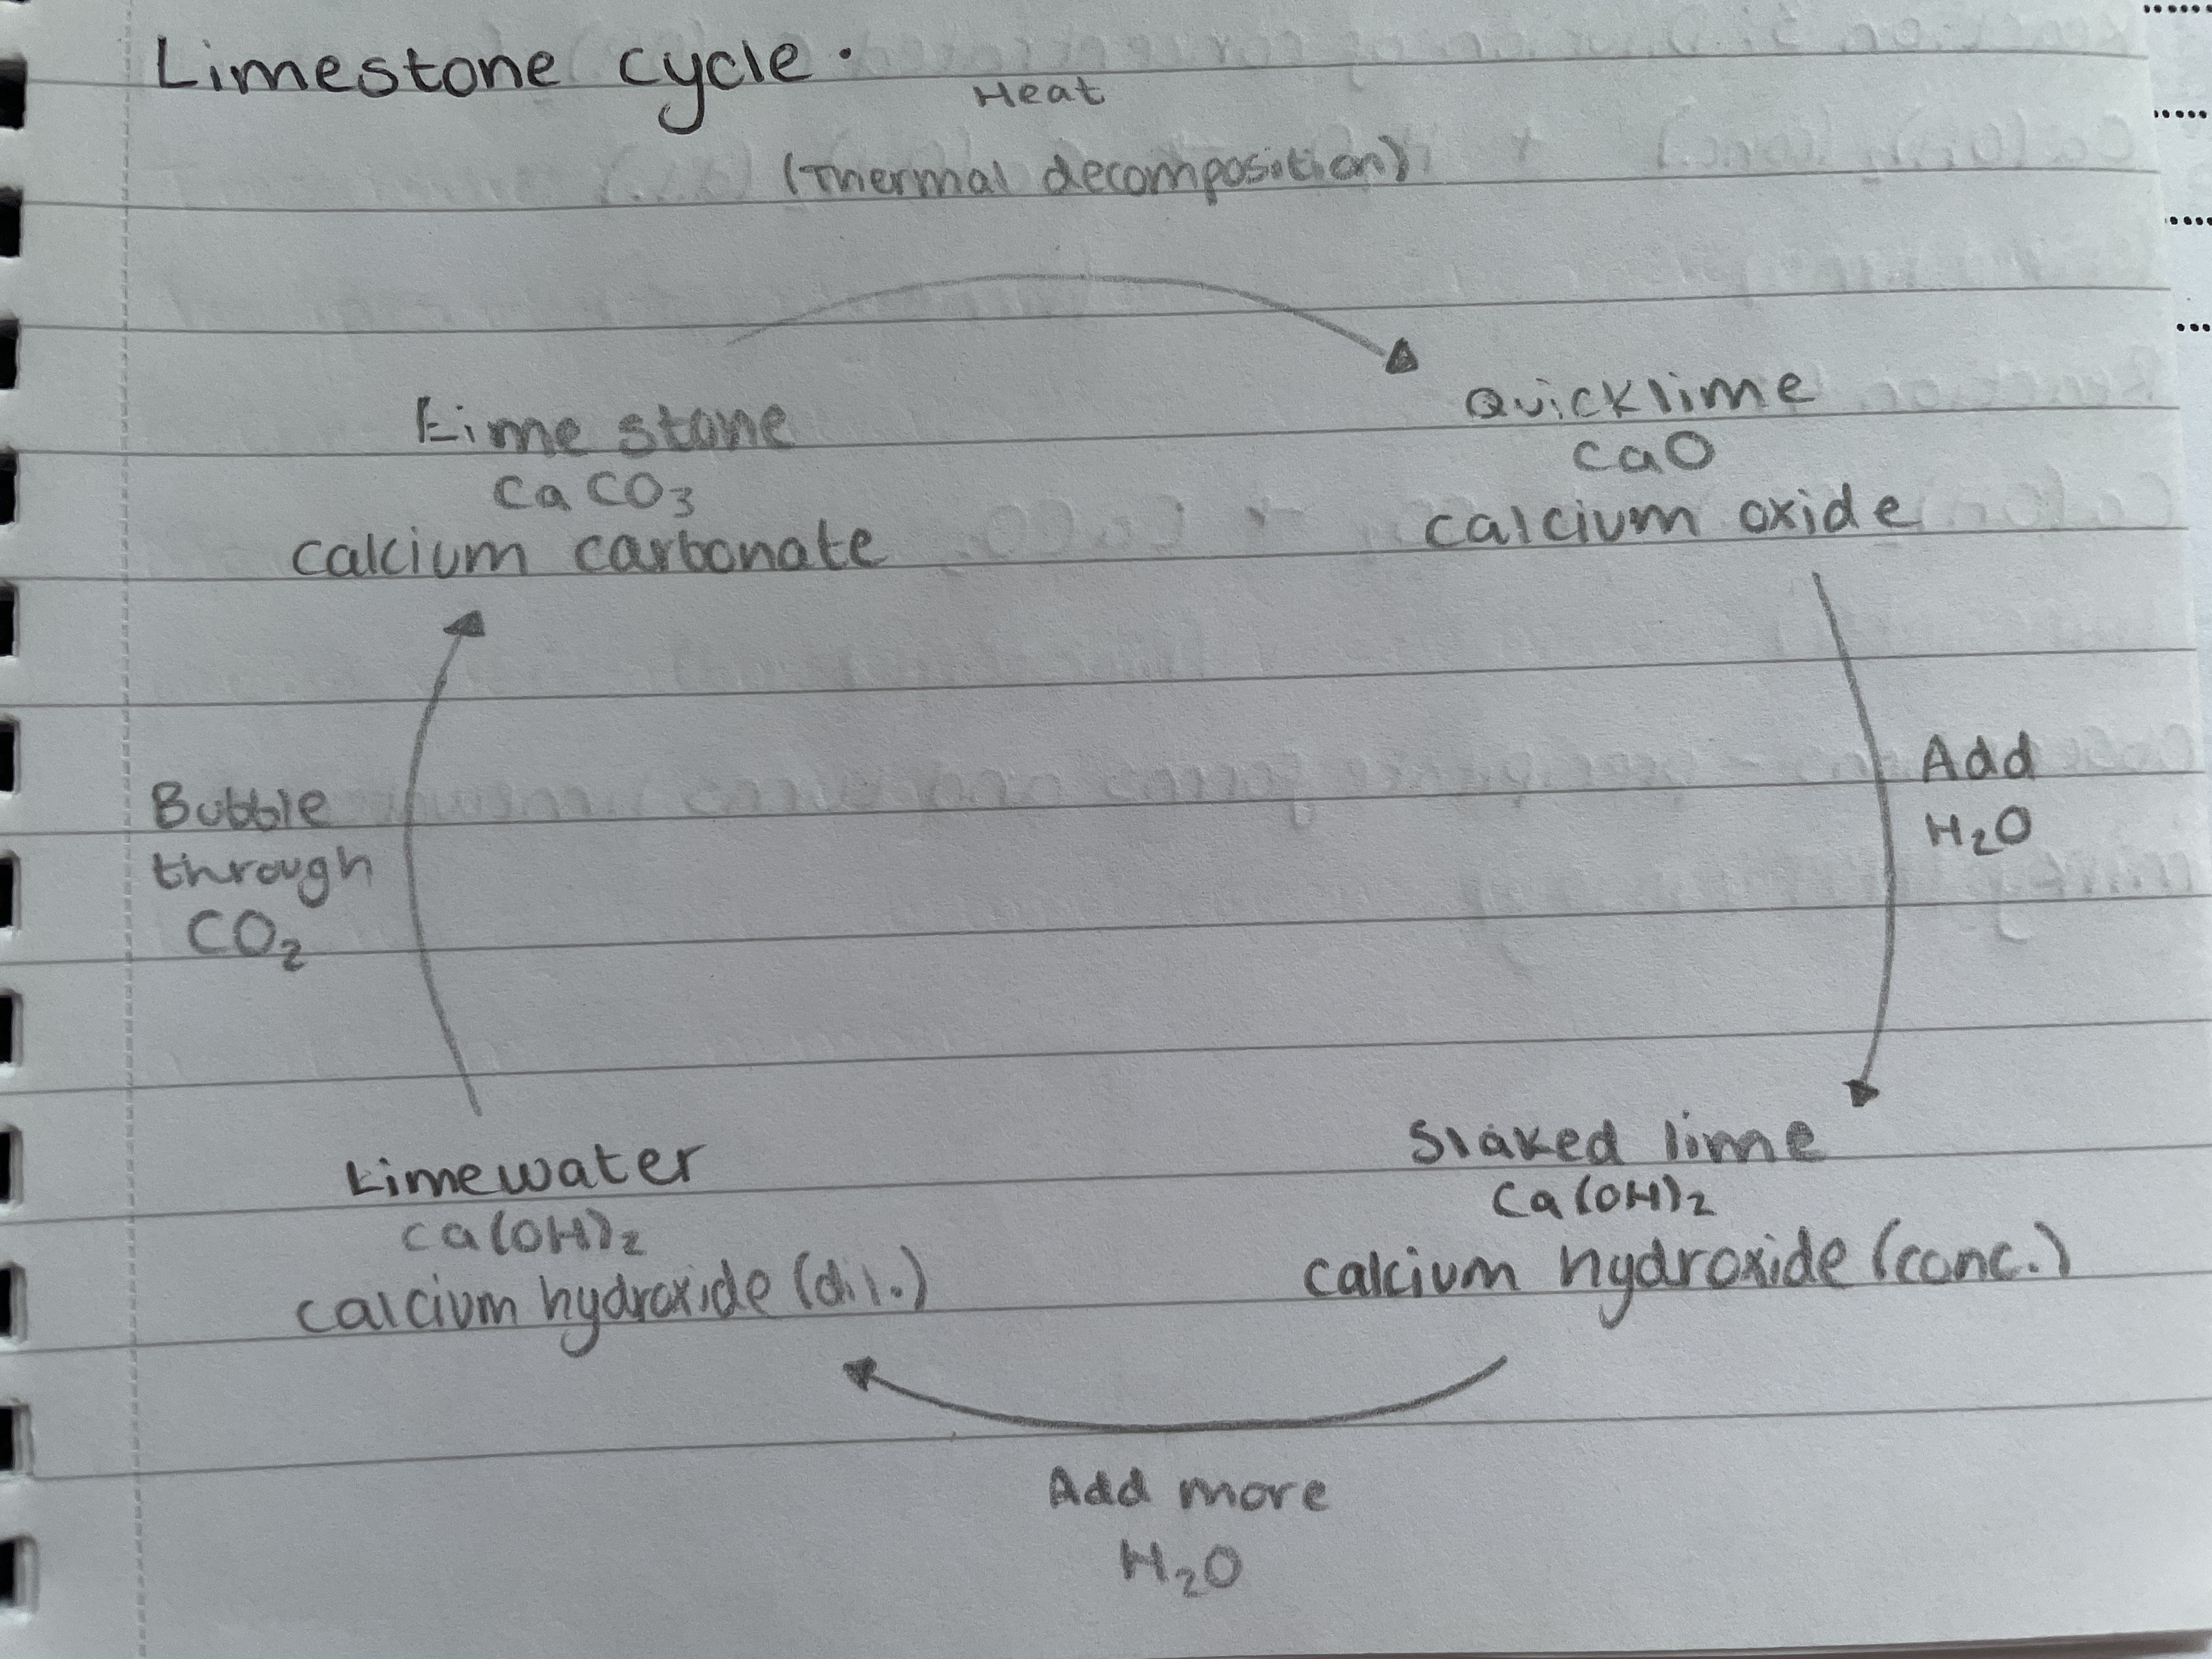 Limestone cycle.
Heat
(Thermal decomposition)
Lime stone
CaCO₃
calcium carbonate
Quicklime
CaO
calcium oxide
Add
H₂O
Slaked lime
Ca(OH)₂
calcium hydroxide (conc.)
Add more
H₂O
Limewater
Ca(OH)₂
calcium hydroxide (dil.)
Bubble
through
CO₂